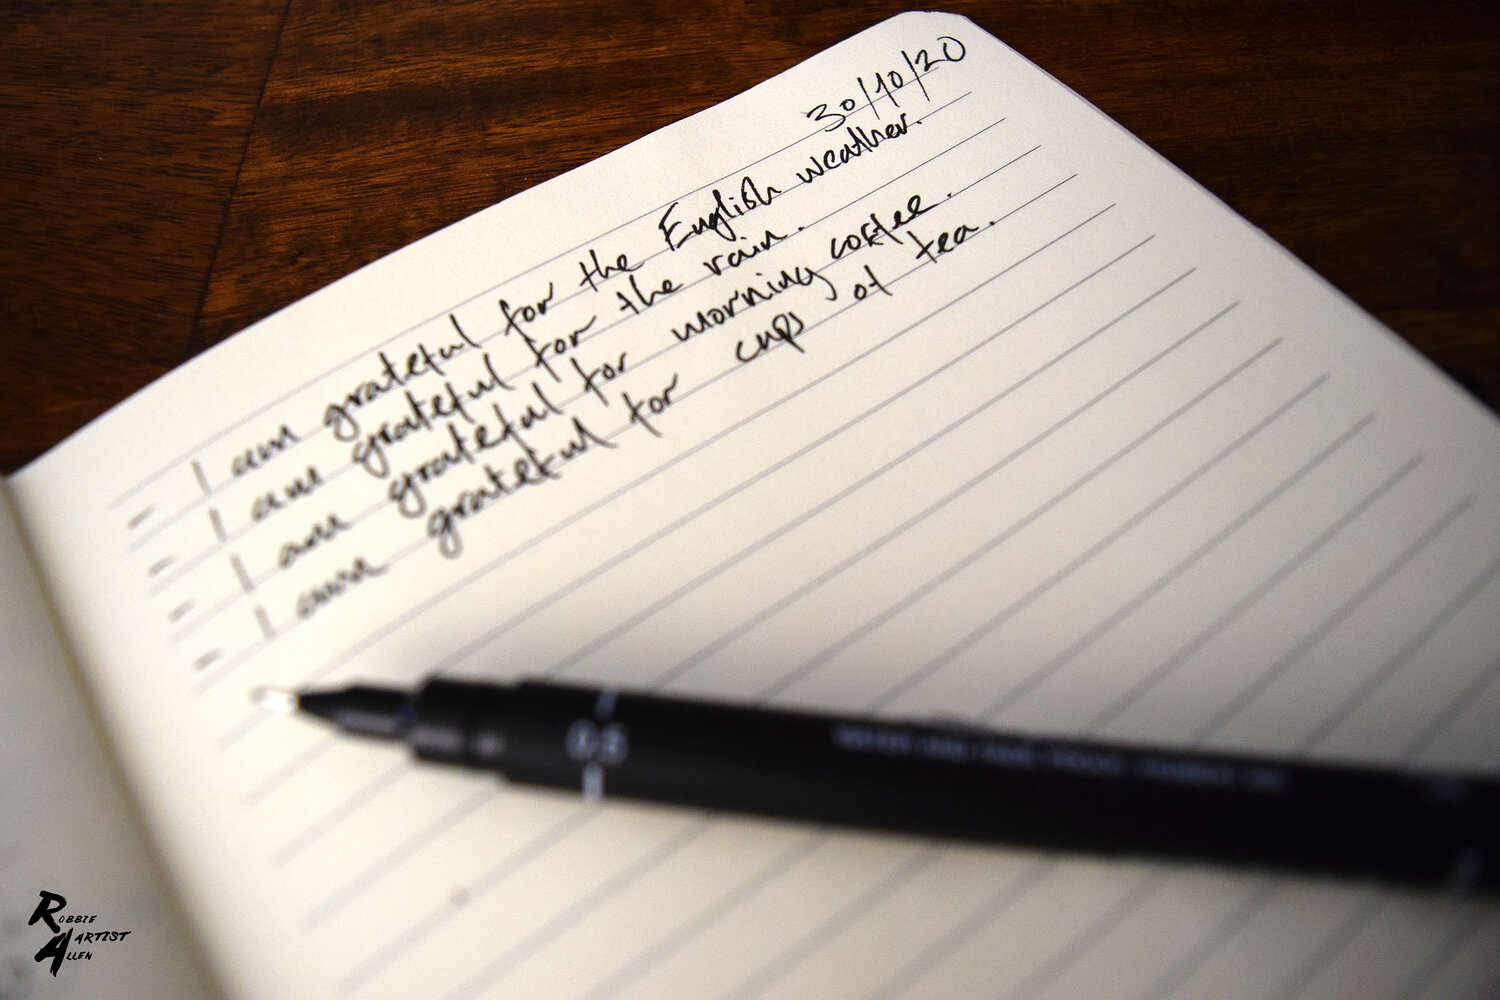 30/10/20
- I am grateful for the English weather.
- I am grateful for the rain.
- I am grateful for morning coffee.
- I am grateful for cups of tea.
0.5
ROBBIE
ARTIST
ALLEN